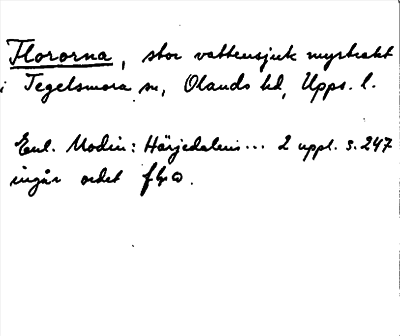 Flororna, stor vattensjuk myrtrakt
i Tegelsmora sn, Olands hd, Upps. l.
Enl. Modin: Härjedalens... 2 uppl. s. 247
ingår ordet flo.